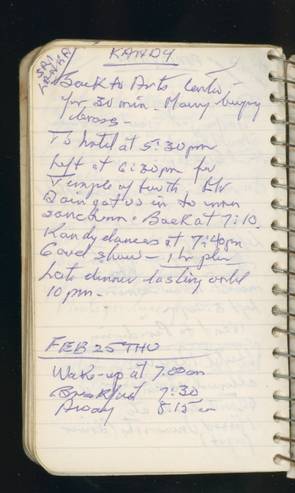 SRI
LANKA
KANDY
Back to Arts Center
for 30 min. Many buying
dresses.
To hotel at 5:30pm
Left at 6:30pm for
Temple of Tooth.
got us in to inner
sanctum. Back at 7:10.
Kandy dances at 7:40pm
Good show - 1 hr plus
Late dinner lasting until
10 pm.
FEB 25 THU
Wake-up at 7:00am
Breakfast 7:30
Away 8:15 am